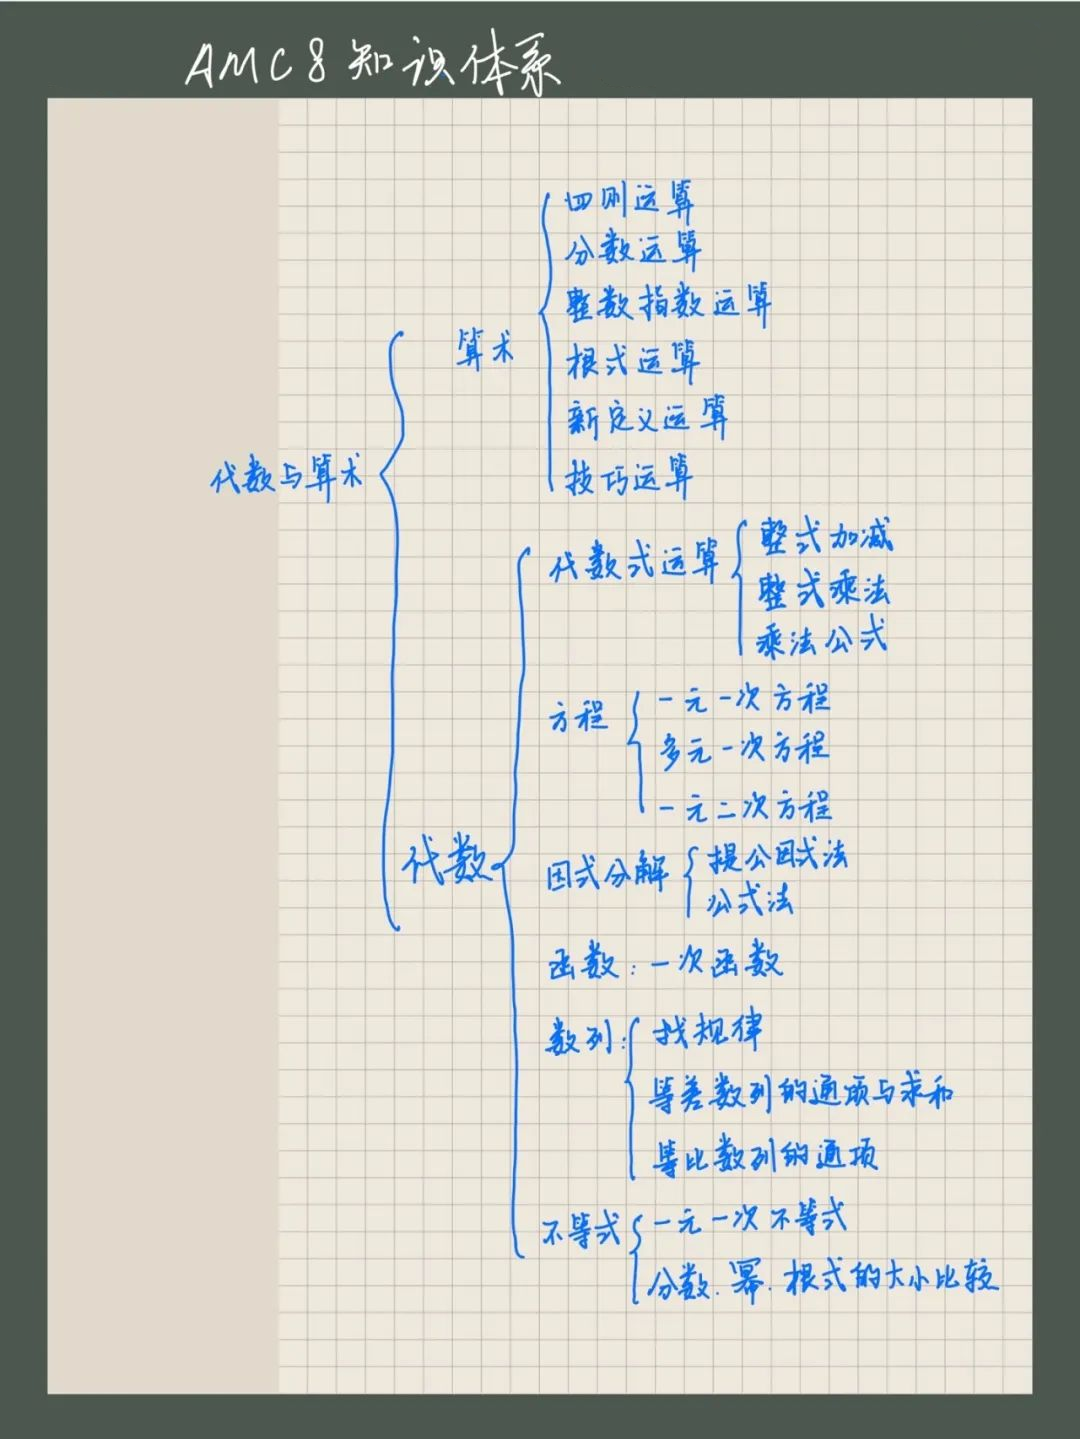 AMC8知识体系
四则运算
分数运算
整数指数运算
算术
根式运算
新定义运算
代数与算术
技巧运算
代数式运算
整式加减
整式乘法
乘法公式
方程
一元一次方程
多元一次方程
一元二次方程
代数
因式分解
提公因式法
公式法
函数:一次函数
数列:
找规律
等差数列的通项与求和
等比数列的通项
不等式
一元一次不等式
分数.幂.根式的大小比较